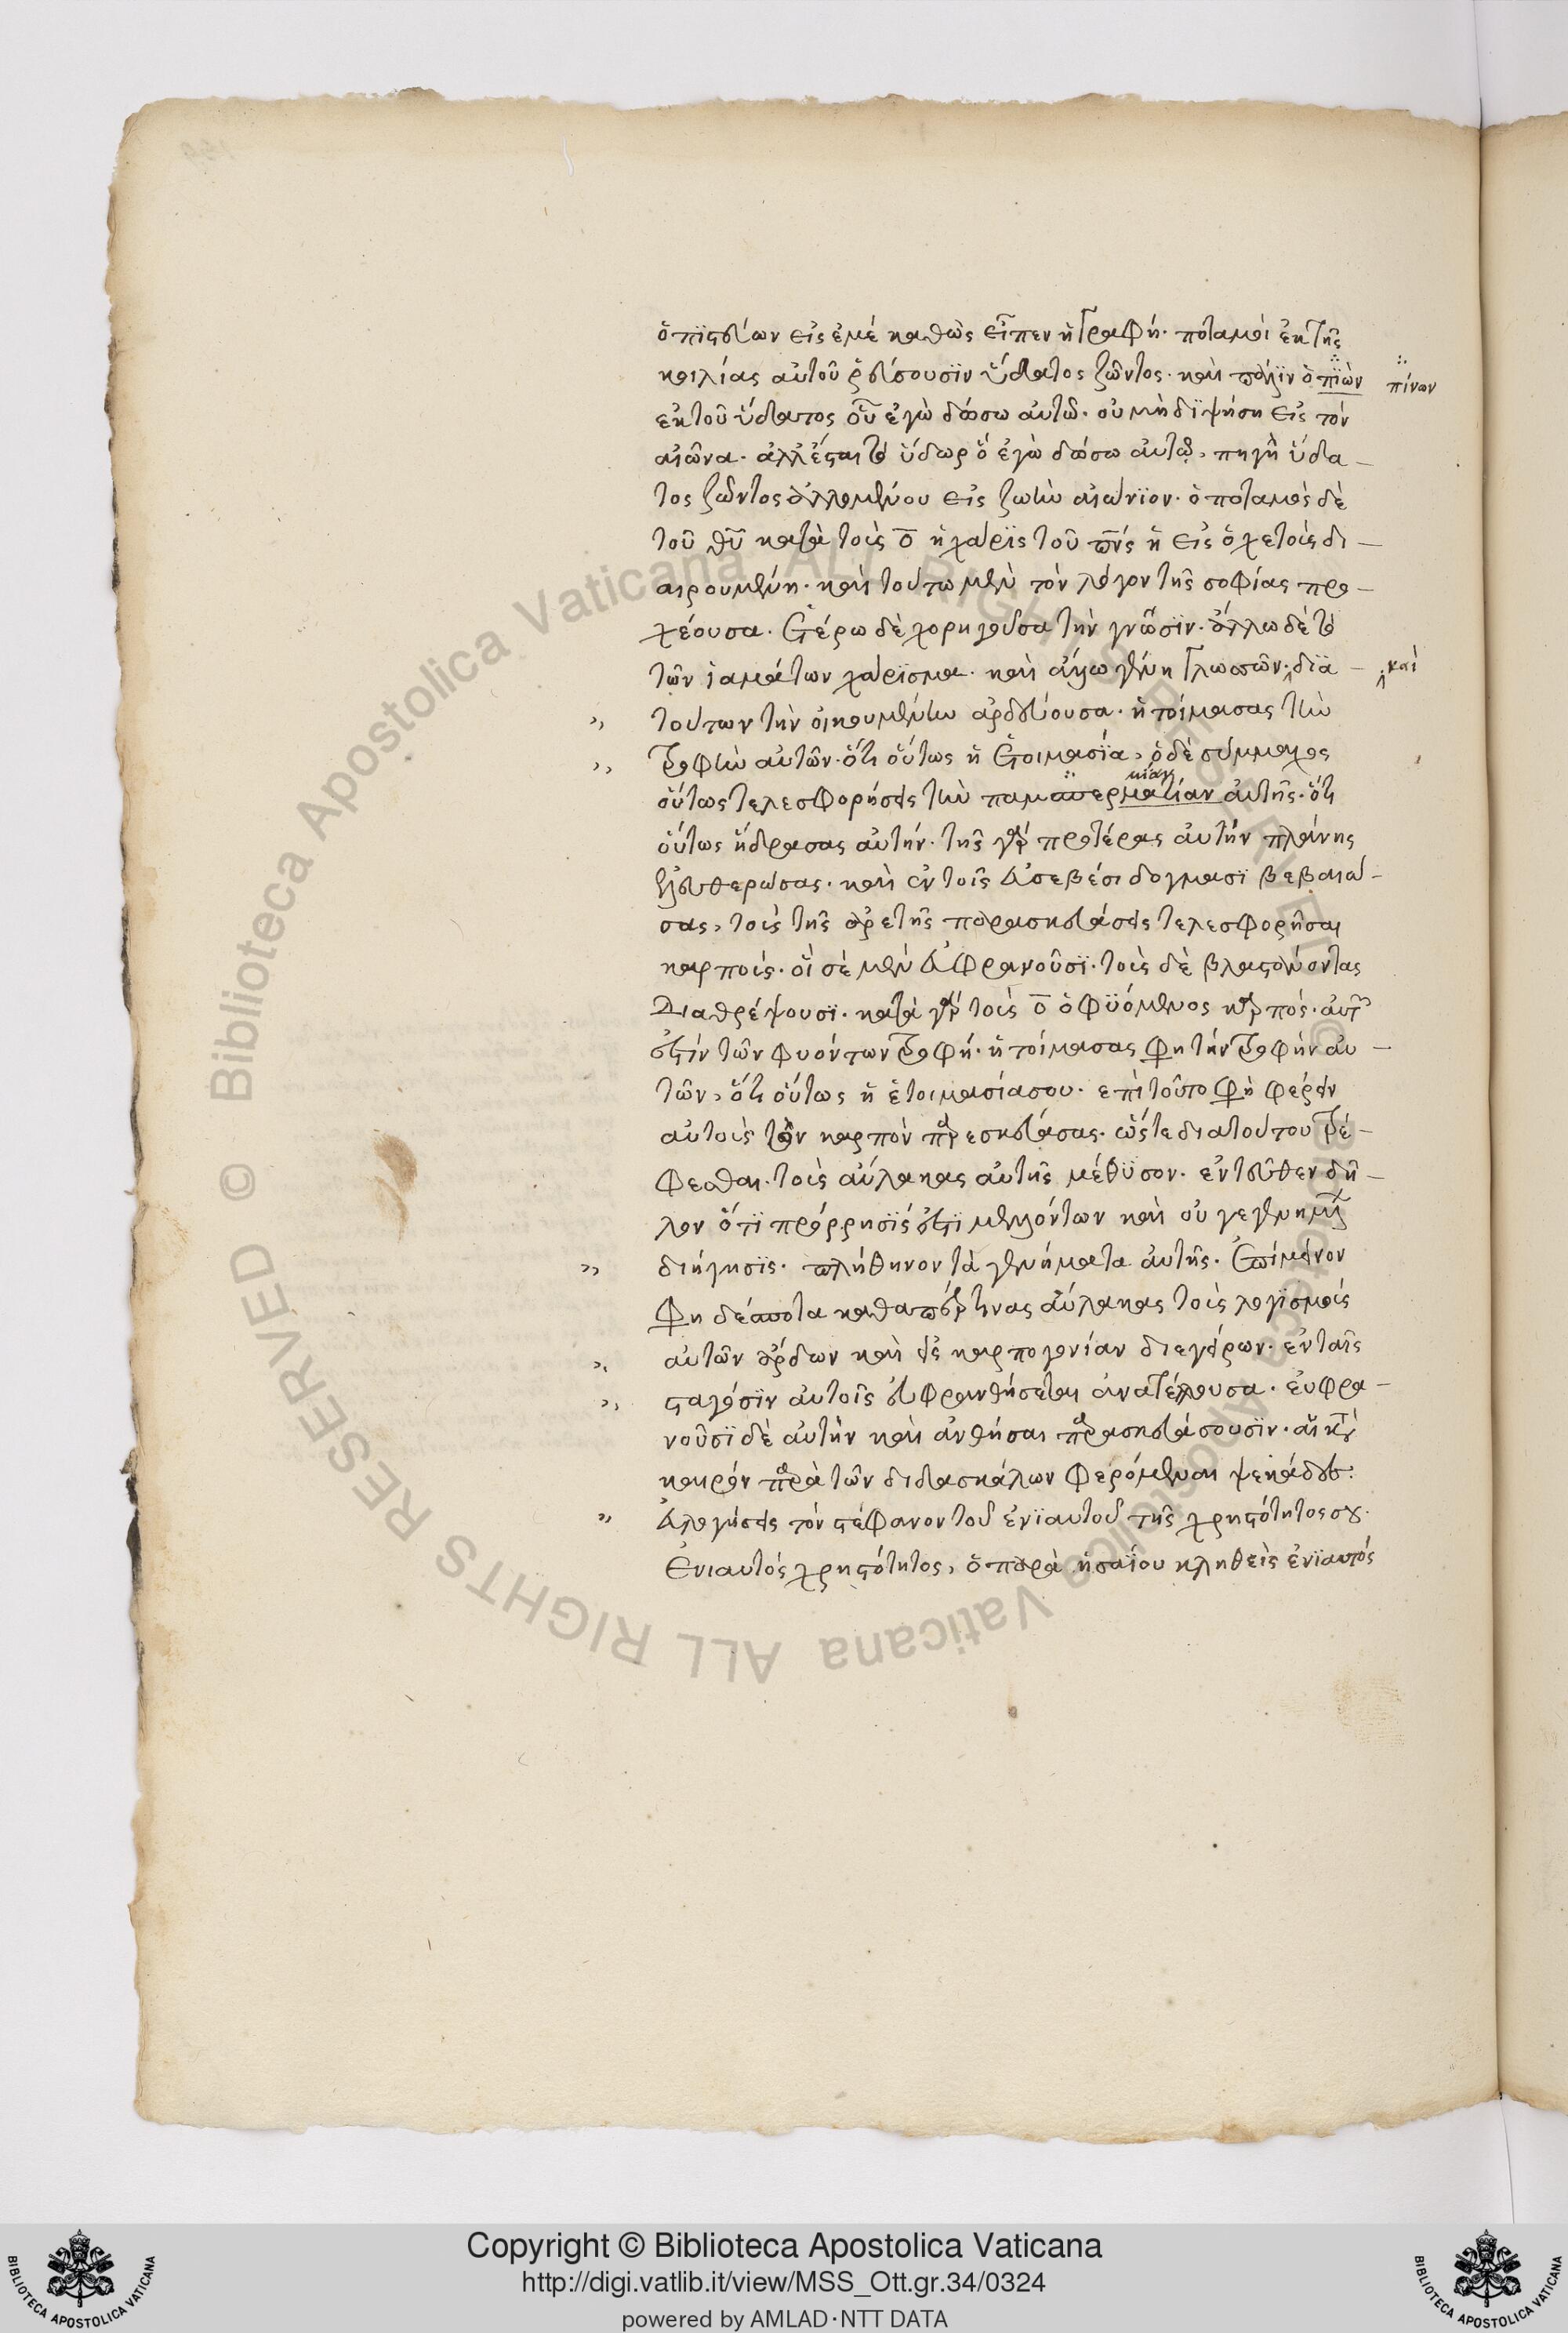 ὁ πϊστεύων εἰς ἐμέ καθὼς εἶπεν ἡ γραφή· ποταμοὶ ἐκ τῆς
κοιλίας αὐτοῦ ῥεύσουσϊν ὕδατος ζῶντος· καὶ πάλϊν ὁ πϊὼν πίνων
ἐκ τοῦ ὕδατος οὗ ἐγὼ δώσω αὐτῶ· οὐ μὴ διψήση εἰς τόν
αἰῶνα· ἀλλ' ἔσται τὸ ὕδωρ ὅ ἐγὼ δώσω αὐτῶ, πηγὴ ὕδα–
τος ζῶντος ἁλλομένου εἰς ζωὴν αἰώνϊον· ὁ ποταμὸς δὲ
τοῦ θῦ κατὰ τοὺς ο̅ ἡ χάρϊς τοῦ πν̅ς ἡ εἰς ὀχετοὺς δι–
αιρουμένη· καὶ τούτω μὲν τὸν λόγον τῆς σοφίας προ–
χέουσα. Ἑτέρω δὲ χορηγοῦσα τὴν γνῶσϊν· ἄλλω δὲ τὸ
τῶν ἰαμάτων χάρϊσμα· καὶ ἄλλω γένη γλωσσῶν· διὰ – καὶ
τούτων τὴν οἰκουμένην ἀρδεύουσα· ἡτοίμασας τὴν
τροφὴν αὐτῶν· ὅτι οὕτως ἡ ἑτοιμασϊα, ὁ δὲ σύμμαχος
οὕτως τελεσφορήσεις τὴν παμσπερματίαν μίαν αὐτῆς· ὅτι
οὕτως ἥδρασας αὐτήν· τῆς γὰρ προτέρας αὐτήν πλάνης
ἐλευθερώσας· καὶ ἐν τοῖς εὐσεβέσι δογμασϊ βεβαιώ–
σας, τοὺς τῆς ἀρετῆς παρασκευάσεις τελεσφορῆσαι
καρπούς· οἵ σὲ μὲν εὐφρανοῦσϊ· τοὺς δὲ βλαστάνοντας
Διαθρέψουσϊ· κατὰ γὰρ τοὺς ο̅ ὁ φϋόμενος καρπός· αὐτ
ἐστίν τῶν φυόντων τροφή· ἡτοίμασας φη τὴν τροφὴν αὐ–
τῶν, ὅτι οὕτως ἡ ἑτοιμασία σου· ἐπὶ τοῦτο φὴ φέρειν
αὐτοὺς τὸν καρπὸν παρεσκεύασας· ὥστε διὰ τούτου τρέ–
φεσθαι· τοὺς αὔλακας αὐτῆς μέθϋσον· ἐντεῦθεν δῆ–
λον ὅτϊ πρόρρησϊς ἐστϊ μελλόντων καὶ οὐ γεγενημ
,, διήγησϊς· πλήθηνον τὰ γεννήματα αὐτῆς· Ἐπίμεινον
φη δέσποτα καθάπερ τϊνας αὔλακας τοὺς λογϊσμοὺς
αὐτῶν ἄρδων καὶ εἰς καρπογονίαν διεγείρων· ἐν ταῖς
,, σταγόσϊν αὐτοῖς εὐφρανθήσεται ἀνατέλλουσα· εὐφρα–
νοῦσϊ δὲ αὐτὴν καὶ ἀνθῆσαι παρασκευάσουσϊν· αἱ κατὰ
καιρὸν παρὰ τῶν διδασκάλων φερόμεναι ψεκάδες:
,, Εὐλογήσεις τὸν στέφανον τοῦ ἐνϊαυτοῦ τῆς χρηστότητος σου.
Ἐνιαυτός χρηστότητος, ὁ παρὰ ἡσαΐου κληθεὶς ἐνϊαυτός
Copyright © Biblioteca Apostolica Vaticana
http://digi.vatlib.it/view/MSS_Ott.gr.34/0324
powered by AMLAD·NTT DATA
BIBLIOTECA APOSTOLICA VATICANA
BIBLIOTECA APOSTOLICA VATICANA
© Biblioteca Apostolica Vaticana ALL RIGHTS RESERVED
© Biblioteca Apostolica Vaticana ALL RIGHTS RESERVED